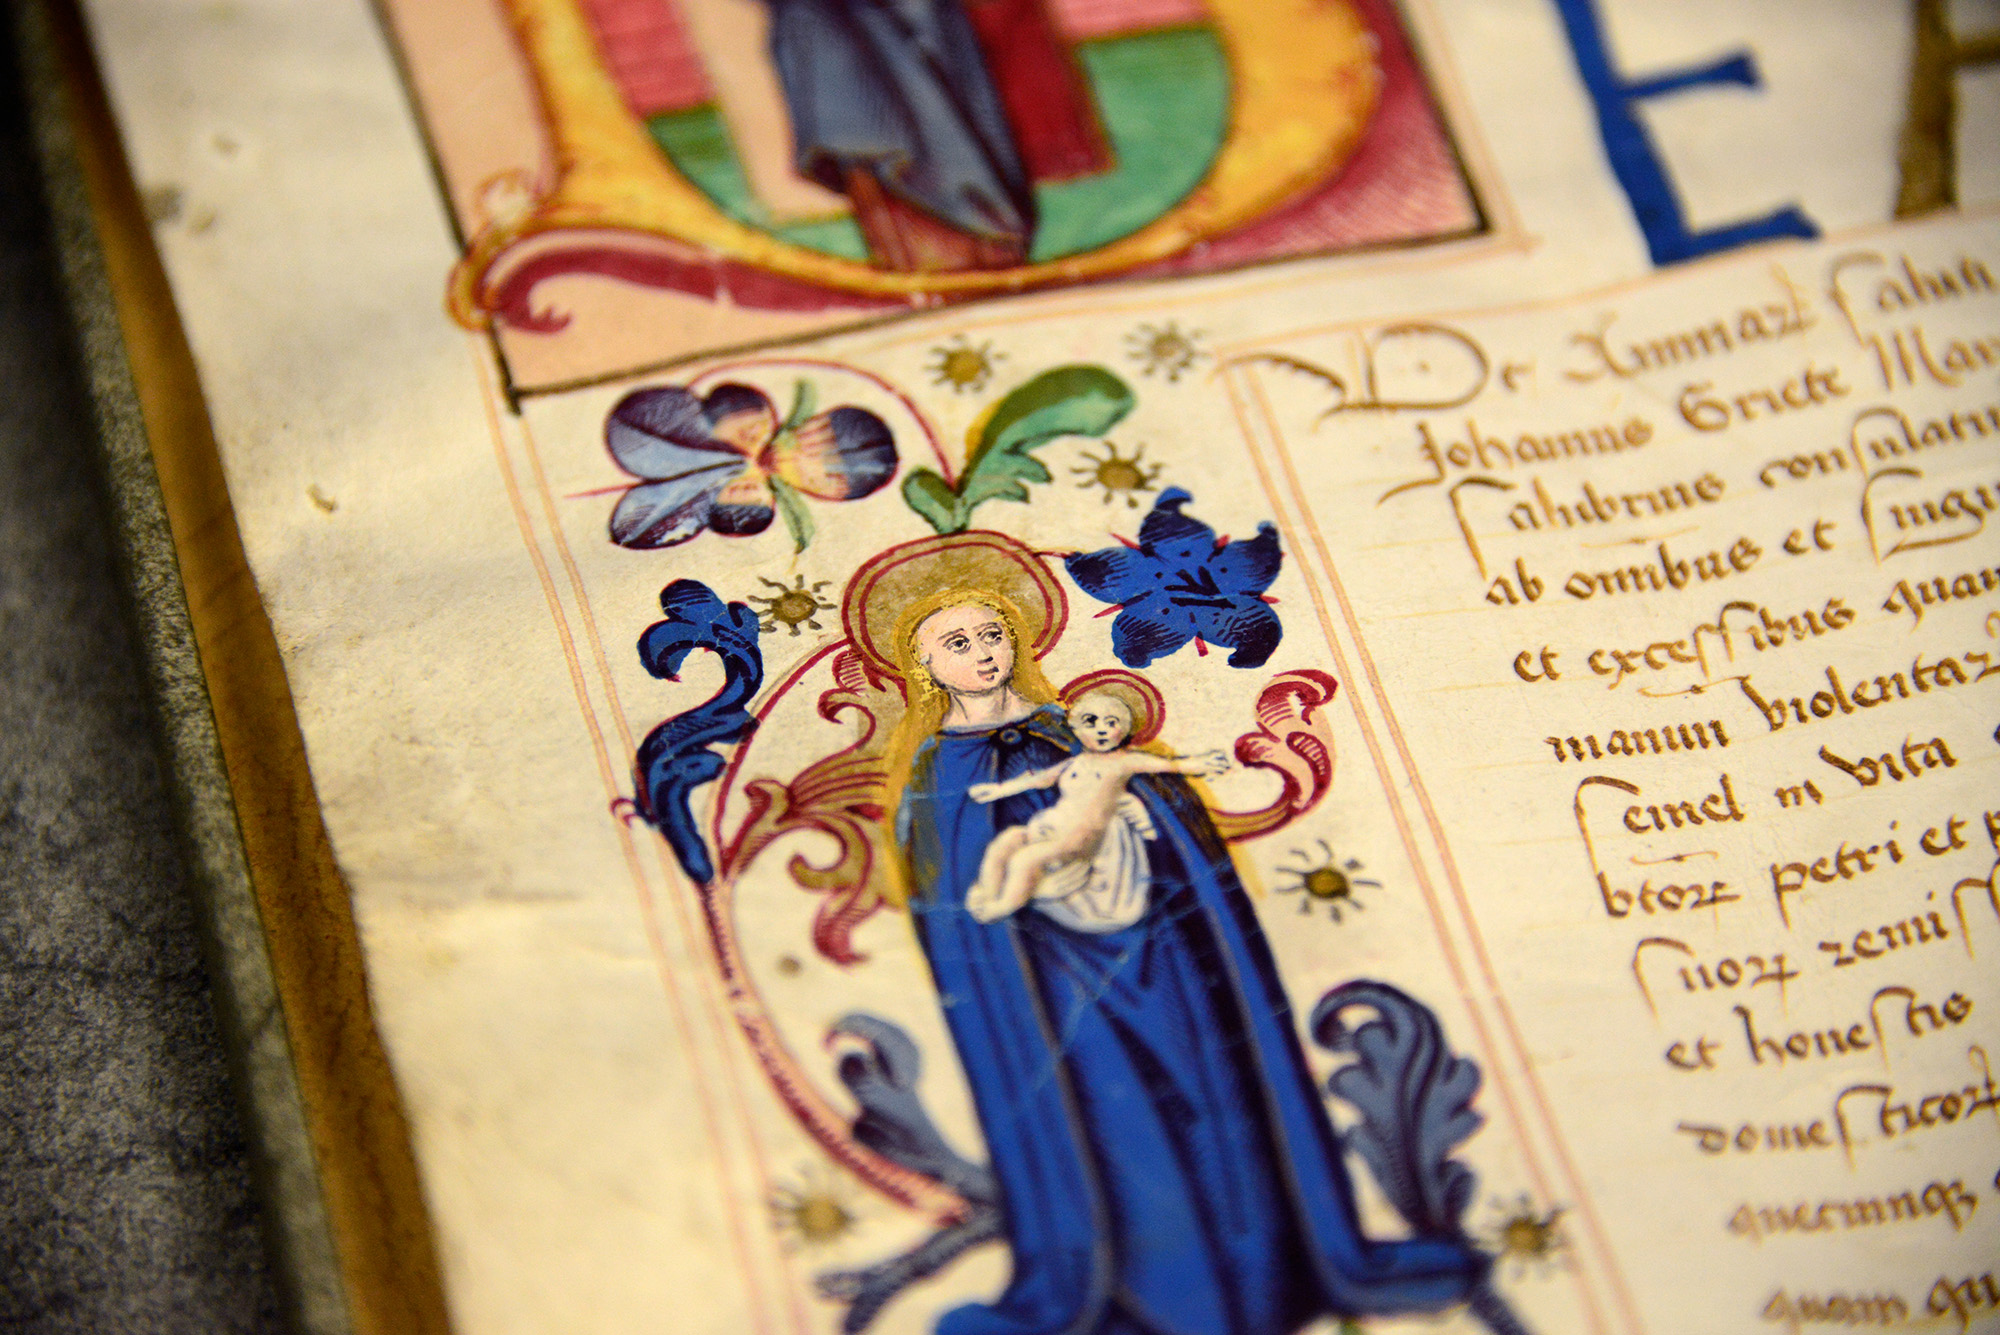 E
De Animarum salut
Johannis Griete Mar
salubrius consulatu
ab omnibus et singu
et excessibus quam
manum violentar
semel in vita
btor petri et p
suor remiss
et honestis
domesticor
quecumqz
quam qu